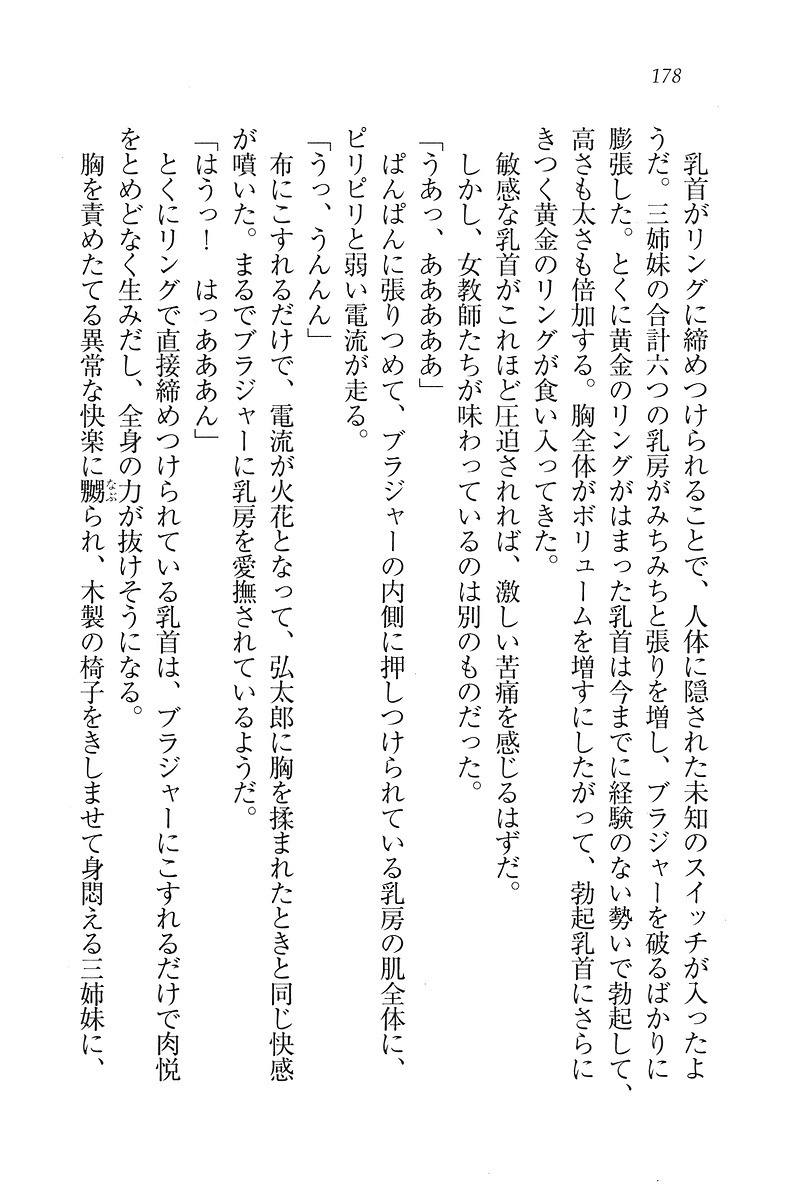 178
乳首がリングに締めつけられることで、人体に隠された未知のスイッチが入ったよ
うだ。三姉妹の合計六つの乳房がみちみちと張りを増し、ブラジャーを破るばかりに
膨張した。とくに黄金のリングがはまった乳首は今までに経験のない勢いで勃起して、
高さも太さも倍加する。胸全体がボリュームを増すにしたがって、勃起乳首にさらに
きつく黄金のリングが食い入ってきた。
敏感な乳首がこれほど圧迫されれば、激しい苦痛を感じるはずだ。
しかし、女教師たちが味わっているのは別のものだった。
「うあっ、あああああ」
ぱんぱんに張りつめて、ブラジャーの内側に押しつけられている乳房の肌全体に、
ピリピリと弱い電流が走る。
「うっ、うんんん」
布にこすれるだけで、電流が火花となって、弘太郎に胸を揉まれたときと同じ快感
が噴いた。まるでブラジャーに乳房を愛撫されているようだ。
「はうっ！　はっあああん」
とくにリングで直接締めつけられている乳首は、ブラジャーにこすれるだけで肉悦
をとめどなく生みだし、全身の力が抜けそうになる。
胸を責めたてる異常な快楽に嬲なぶられ、木製の椅子をきしませて身悶える三姉妹に、